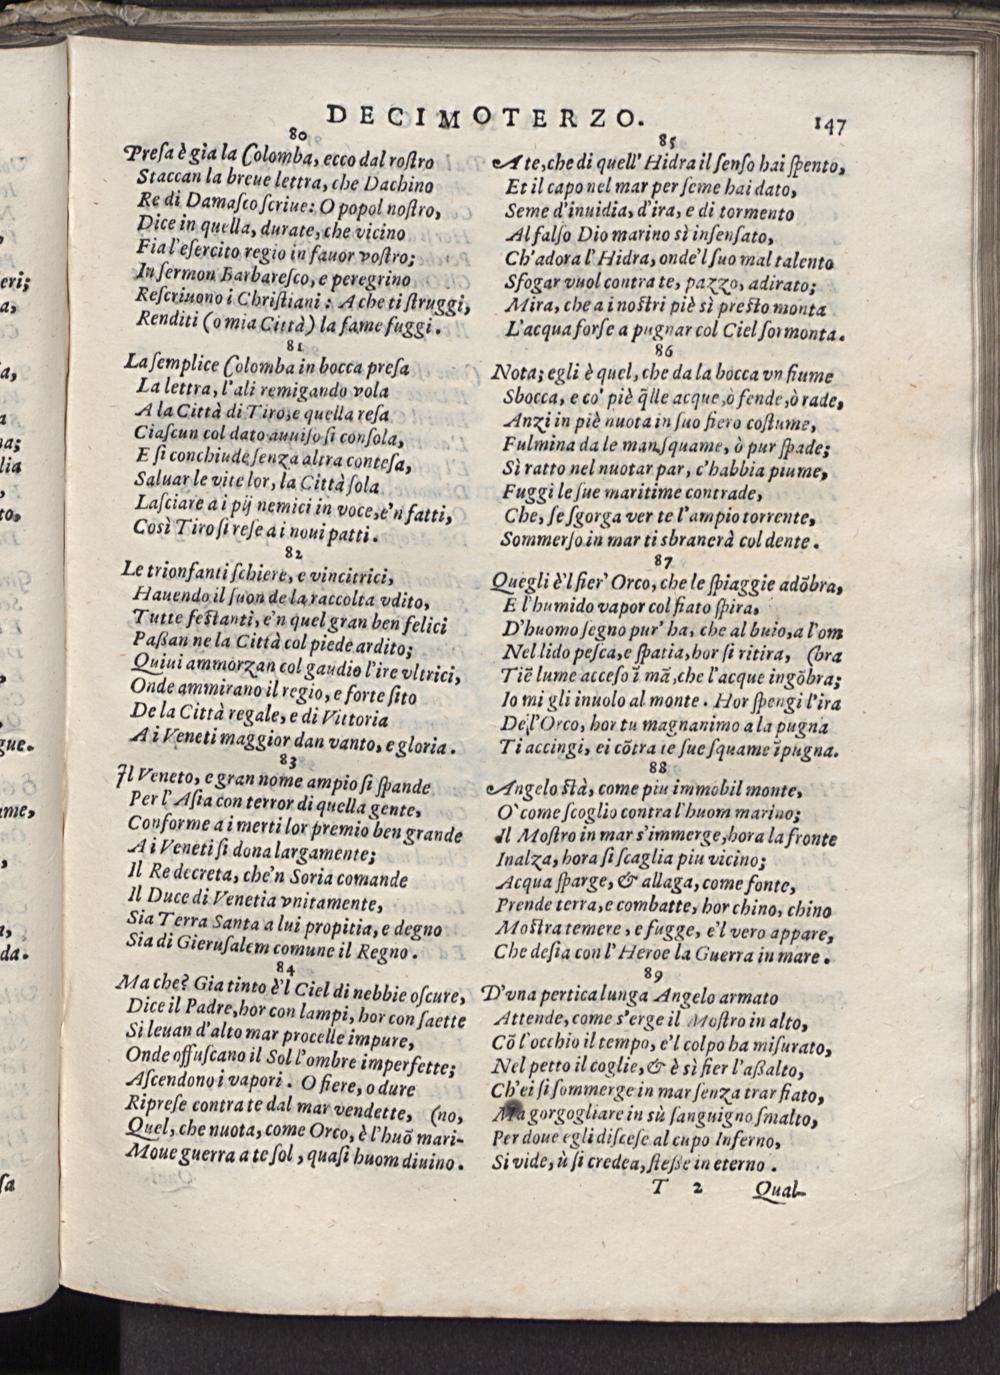 DECIMOTERZO. 147
80
Preſa è gia la Colomba, ecco dal roſtro
Staccan la breue lettra, che Dachino
Re di Damaſco ſcriue: O popol noſtro,
Dice in quella, durate, che vicino
Fia l'eſercito regio in fauor voſtro;
In ſermon Barbareſco, e peregrino
Reſcriuono i Chriſtiani: A che ti ſtruggi,
Renditi (o mia Città) la fame fuggi.
81
La ſemplice Colomba in bocca preſa
La lettra, l'ali remigando vola
A la Città di Tiro, e quella reſa
Ciaſcun col dato auuiſo ſi conſola,
E ſi conchiude ſenza altra conteſa,
Saluar le vite lor, la Città ſola
Laſciare a i pij nemici in voce, e'n fatti,
Così Tiro ſi reſe a i noui patti.
82
Le trionfanti ſchiere, e vincitrici,
Hauendo il ſuon de la raccolta vdito,
Tutte feſtanti, e'n quel gran ben felici
Paßan ne la Città col piede ardito;
Quiui ammorzan col gaudio l'ire vltrici,
Onde ammirano il regio, e forte ſito
De la Città regale, e di Vittoria
A i Veneti maggior dan vanto, e gloria.
83
Il Veneto, e gran nome ampio ſi ſpande
Per l'Aſia con terror di quella gente,
Conforme a i merti lor premio ben grande
A i Veneti ſi dona largamente;
Il Re decreta, che'n Soria comande
Il Duce di Venetia vnitamente,
Sia Terra Santa a lui propitia, e degno
Sia di Gieruſalem comune il Regno.
84
Ma che? Gia tinto è'l Ciel di nebbie oſcure,
Dice il Padre, hor con lampi, hor con ſaette
Si leuan d'alto mar procelle impure,
Onde offuſcano il Sol l'ombre imperfette;
Aſcendono i vapori. O fiere, o dure
Ripreſe contra te dal mar vendette, (no,
Quel, che nuota, come Orco, è l'huõ mari-
Moue guerra a te ſol, quaſi huom diuino.
85
A te, che di quell'Hidra il ſenſo hai ſpento,
Et il capo nel mar per ſeme hai dato,
Seme d'inuidia, d'ira, e di tormento
Al falſo Dio marino sì inſenſato,
Ch'adora l'Hidra, onde'l ſuo mal talento
Sfogar vuol contra te, pazzo, adirato;
Mira, che a i noſtri piè sì preſto monta
L'acqua forſe a pugnar col Ciel ſormonta.
86
Nota; egli è quel, che da la bocca vn fiume
Sbocca, e co' piè q̃lle acque, ò fende, ò rade,
Anzi in piè nuota in ſuo fiero coſtume,
Fulmina da le man ſquame, ò pur ſpade;
Sì ratto nel nuotar par, c'habbia piume,
Fuggi le ſue maritime contrade,
Che, ſe ſgorga ver te l'ampio torrente,
Sommerſo in mar ti sbranerà col dente.
87
Quegli è'l fier' Orco, che le ſpiaggie adõbra,
E l'humido vapor col fiato ſpira,
D'huomo ſegno pur' ha, che al buio, a l'om
Nel lido peſca, e ſpatia, hor ſi ritira, (bra
Tiẽ lume acceſo ĩ mã, che l'acque ingõbra;
Io mi gli inuolo al monte. Hor ſpengi l'ira
De l'Orco, hor tu magnanimo a la pugna
Ti accingi, ei cõtra te ſue ſquame ĩpugna.
88
Angelo ſtà, come piu immobil monte,
O' come ſcoglio contra l'huom marino;
Il Moſtro in mar s'immerge, hora la fronte
Inalza, hora ſi ſcaglia piu vicino;
Acqua ſparge, & allaga, come fonte,
Prende terra, e combatte, hor chino, chino
Moſtra temere, e fugge, e'l vero appare,
Che deſia con l'Heroe la Guerra in mare.
89
D'vna pertica lunga Angelo armato
Attende, come s'erge il Moſtro in alto,
Cõ l'occhio il tempo, e'l colpo ha miſurato,
Nel petto il coglie, & è sì fier l'aßalto,
Ch'ei ſi ſommerge in mar ſenza trar fiato,
Ma gorgogliare in sù ſanguigno ſmalto,
Per doue egli diſceſe al cupo Inferno,
Si vide, ù ſi credea, ſteße in eterno.
T 2 Qual-